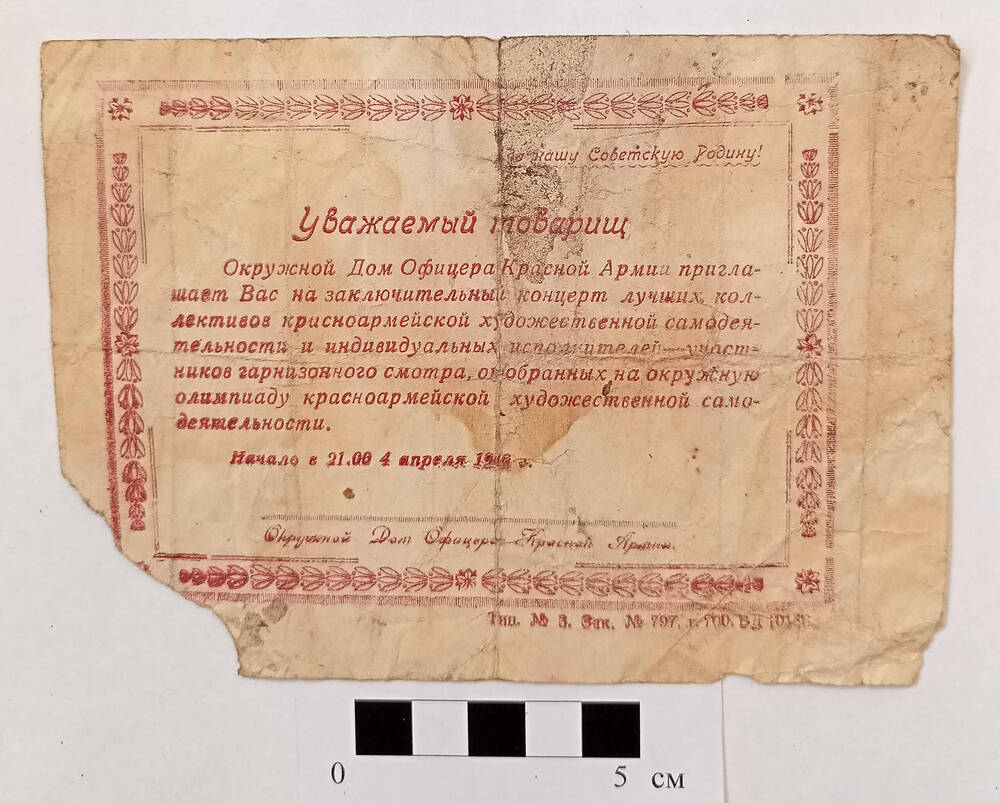 нашу Советскую Родину!
Уважаемый товарищ
Окружной Дом Офицера Красной Армии пригла-
шает Вас на заключительный концерт лучших кол-
лективов красноармейской художественной самодея-
тельности и индивидуальных исполнителей—участ-
ников гарнизонного смотра, отобранных на окружную
олимпиаду красноармейской художественной само-
деятельности.
Начало в 21.00 4 апреля г.
Окружной Дом Офицера Красной Армии.
Тип. № 3. Зак. № 797, т. 700.
0 5 см